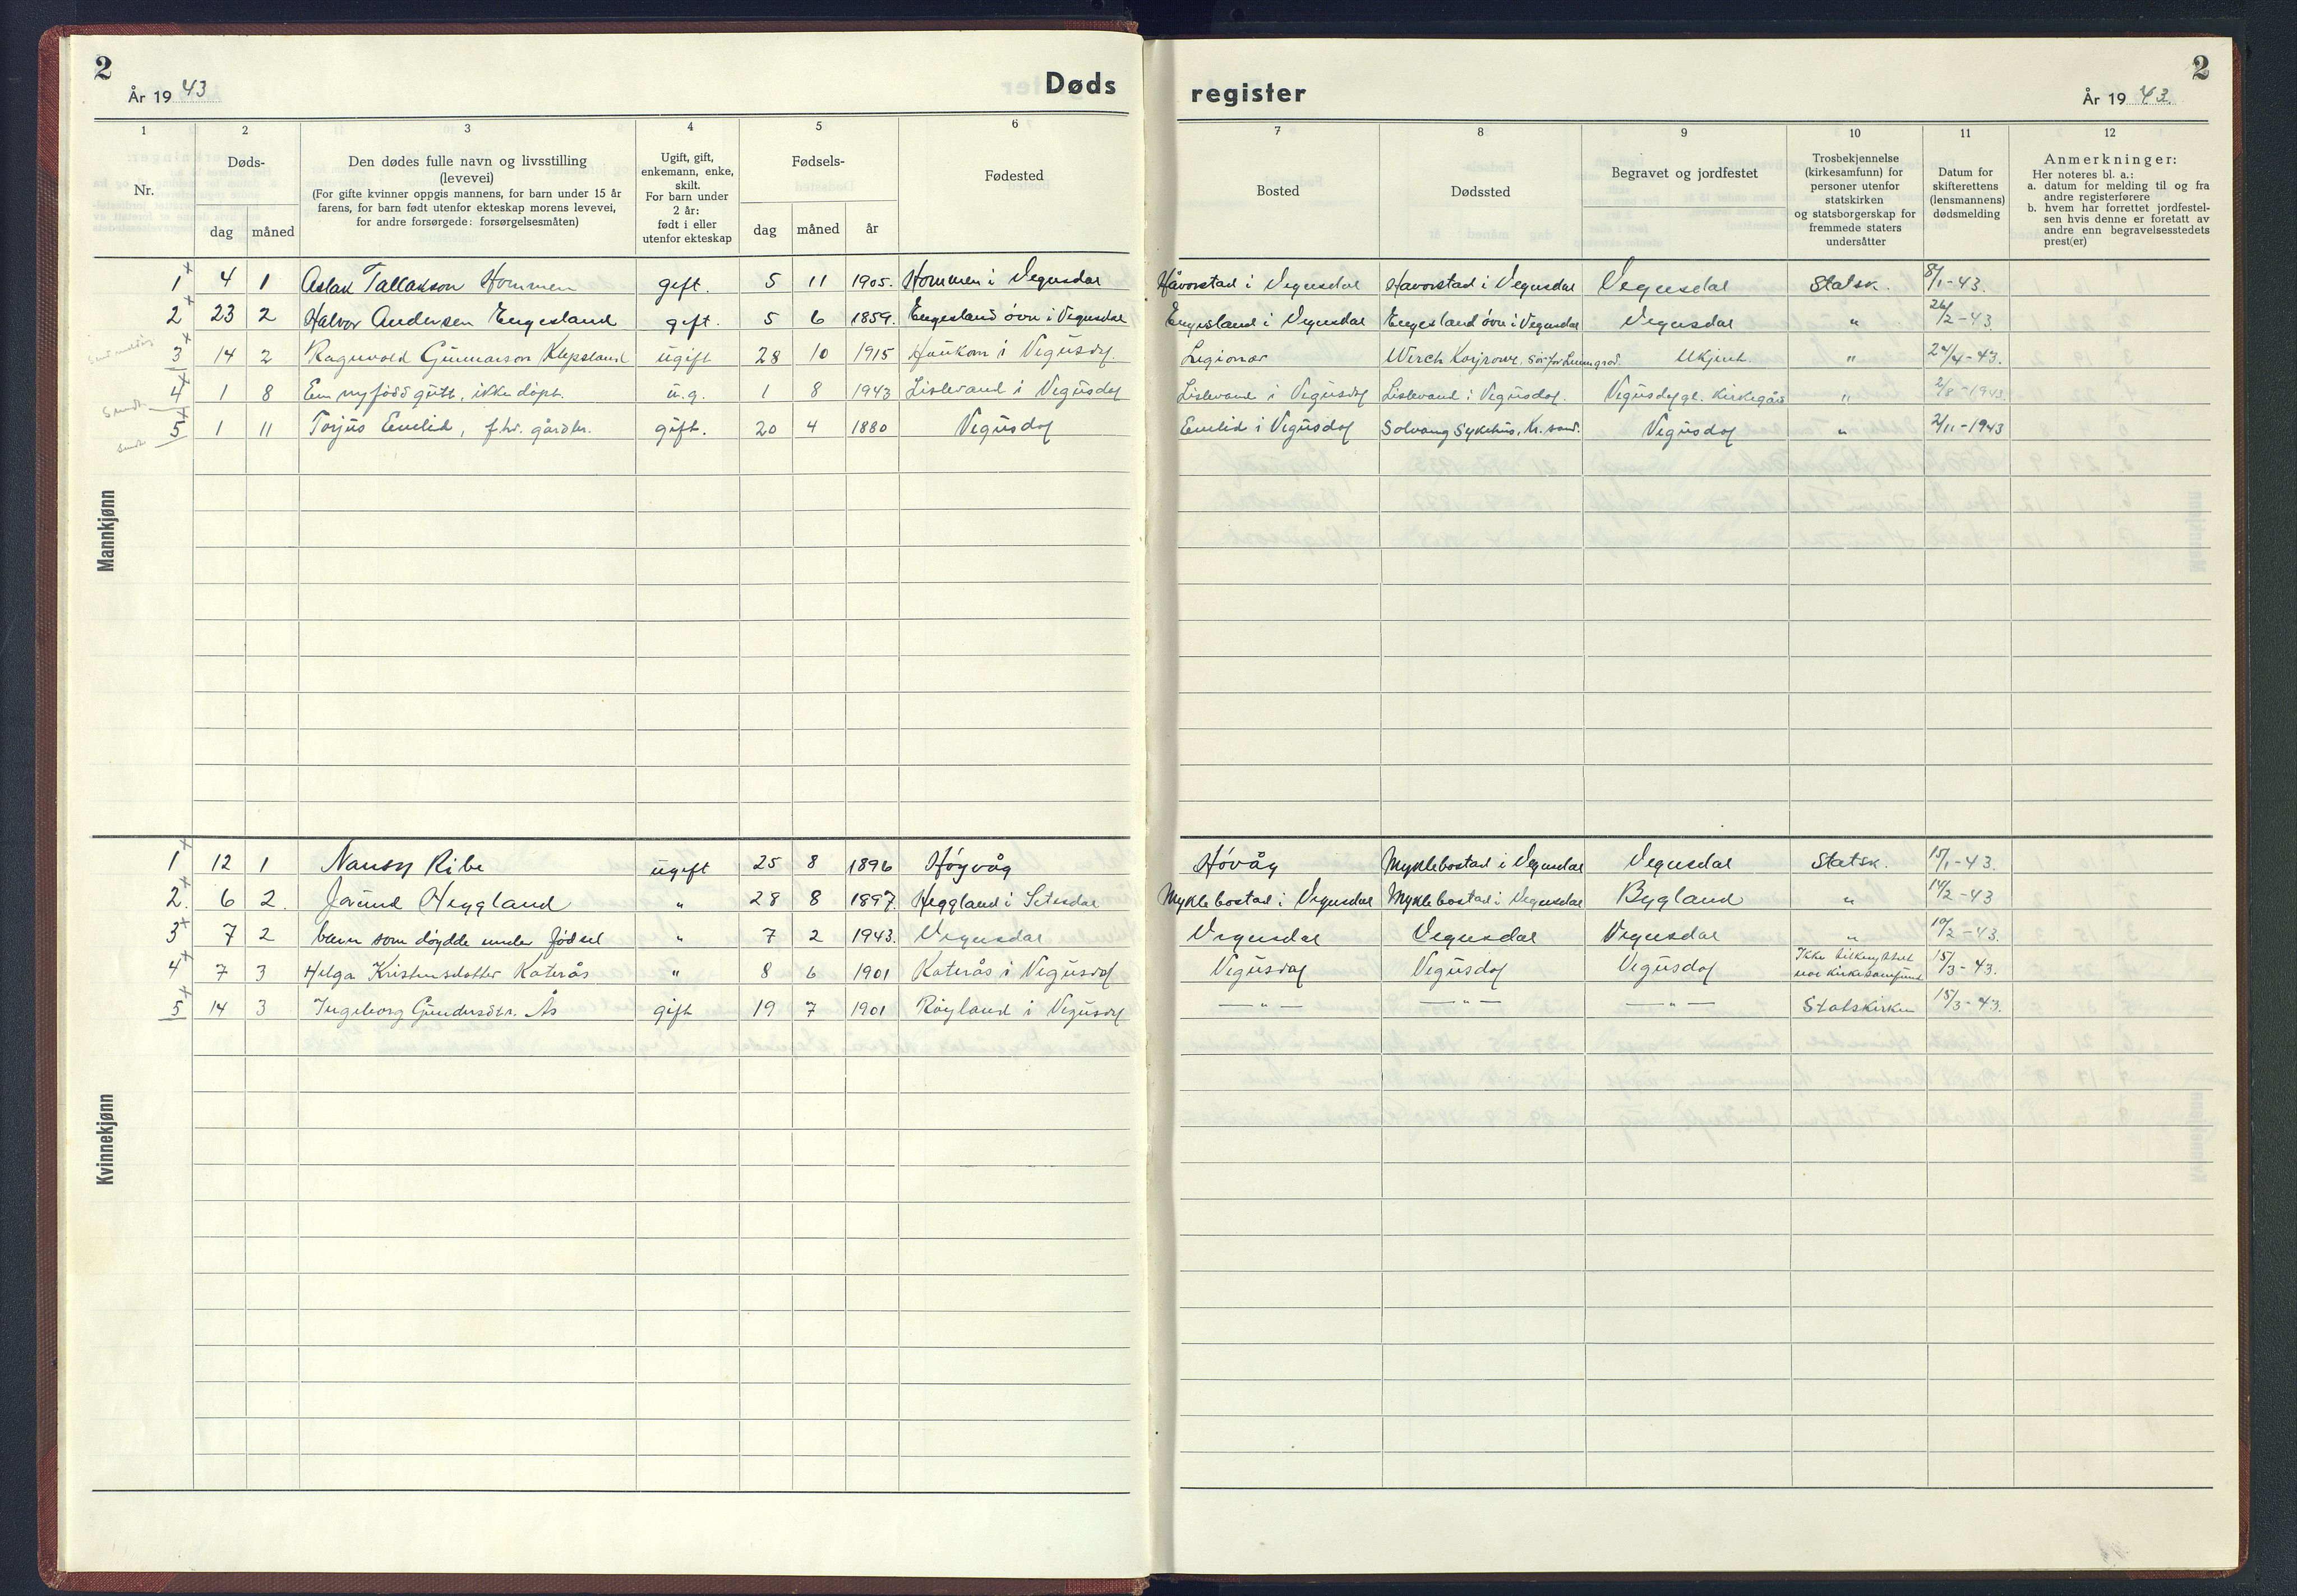 2
År 1943
Døds
1 2 3 4 5 6
Nr.
Døds-
dag måned
Den dødes fulle navn og livsstilling
(levevei)
(For gifte kvinner oppgis mannens, for barn under 15 år
farens, for barn født utenfor ekteskap morens levevei,
for andre forsørgede: forsørgelsesmåten)
Ugift, gift,
enkemann, enke,
skilt.
For barn under
2 år:
født i eller
utenfor ekteskap
Fødsels-
dag måned år
Fødested
Mannkjønn
1 4 1 Aslak Tallakson Hommen gift. 5 11 1905. Hommen i Vegusdal
2 23 2 Halvor Andersen Engesland gift. 5 6 1859. Engesland øvre i Vegusdal
3 14 2 Ragnvald Gunnarson Klepsland ugift 28 10 1915 Haukom i Vegusdal
4 1 8 Em nyfødd gutt, ikke døpt. u.g. 1 8 1943 Lislevand i Vegusdal
Sendt
5 1 11 Torjus Emelid, fhv. gårdbr. gift. 20 4 1880 Vegusdal
Sendt
Kvinnekjønn
1 12 1 Nansy Ribe ugift 25 8 1896 Høyvåg
2. 6 2. Jórund Heggland " 28 8 1897. Heggland i Setesdal
3 7 2 barn som døydde under fødsel " 7 2 1943. Vegusdal
4 7 3 Helga Kristensdotter Katerås " 8 6 1901 Katerås i Vegusdal
5 14 3 Ingeborg Gundersdtr. Ås gift 19 7 1901 Røyland i Vegusdal
register
2
År 1943.
7 8 9 10 11 12
Bosted
Dødssted
Begravet og jordfestet
Trosbekjennelse
(kirkesamfunn) for
personer utenfor
statskirken
og statsborgerskap for
fremmede staters
undersåtter
Datum for
skifterettens
(lensmannens)
dødsmelding
Anmerkninger:
Her noteres bl. a.:
a. datum for melding til og fra
andre registerførere
b. hvem har forrettet jordfestel-
sen hvis denne er foretatt av
andre enn begravelsesstedets
prest(er)
Håvorstad i Vegusdal Håvorstad i Vegusdal Vegusdal Statsk. 8/1-43.
Engesland i Vegusdal Engesland øvre i Vegusdal Vegusdal " 26/2-43.
Legionær Ukjent. " 24/4-43.
Lislevand i Vegusdal Lislevand i Vegusdal. Vegusdal gl. Kirkegård " 2/8-1943.
Emelid i Vegusdal Solvang Sykehus, Kr.sand. Vegusdal " 2/11-1943
Høvåg Myklebostad i Vegusdal Vegusdal Statsk. 15/1-43.
Myklebostad i Vegusdal Myklebostad i Vegusdal Bygland " 14/2-43
Vegusdal Vegusdal Vegusdal " 10/2-43.
Vegusdal Vegusdal Vegusdal Ikke tilknyttet
noe kirkesamfund 15/3-43.
— " — — " — — " — Statskirken 15/3-43.